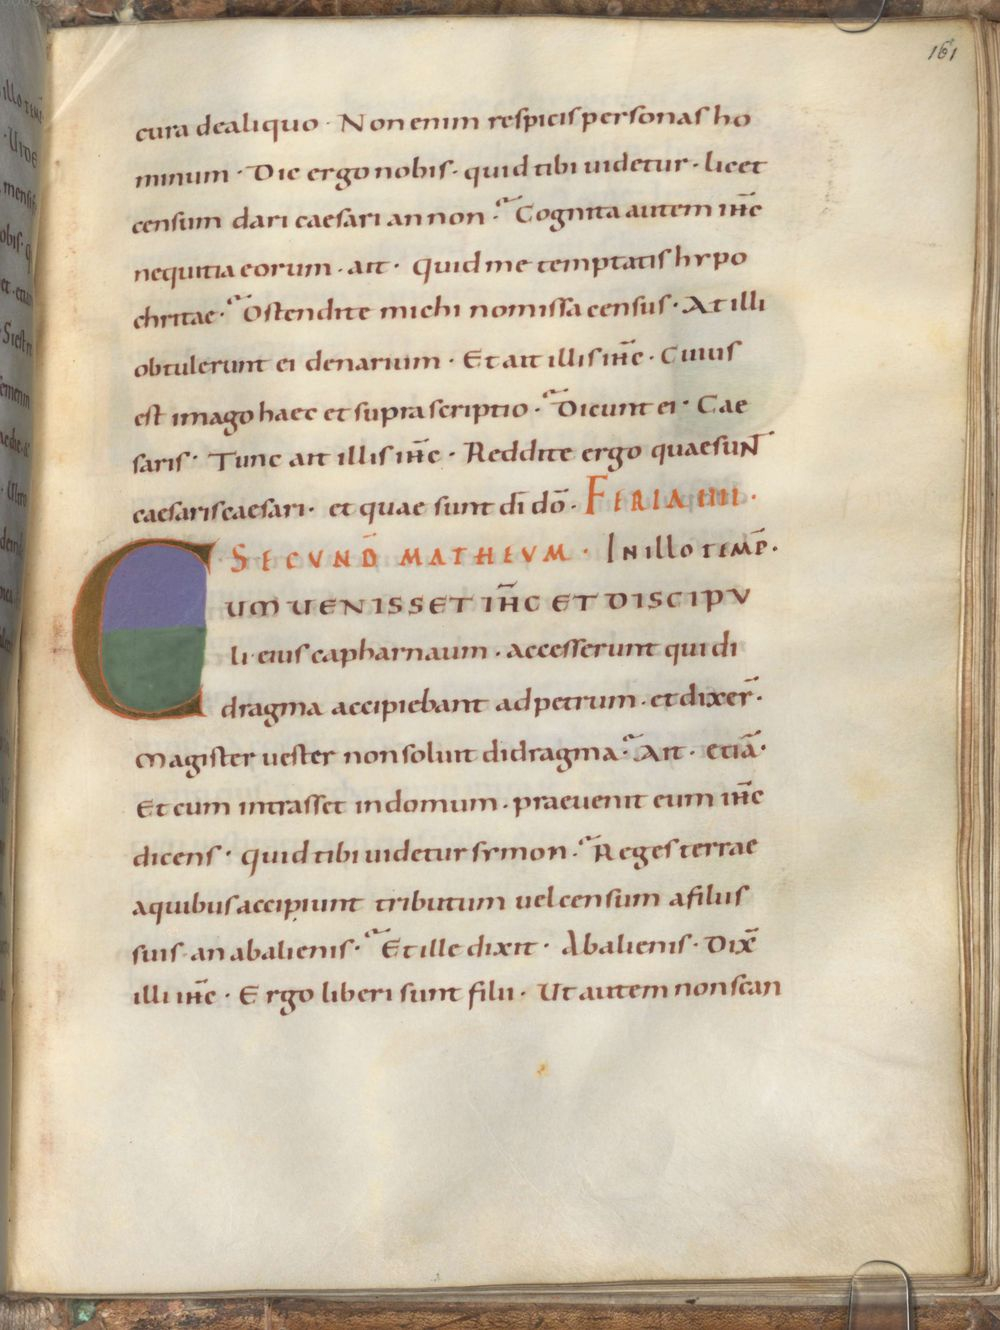 161
cura dealiquo · Non enim respicis personas ho
minum · Dic ergo nobis · quid tibi uidetur · licet
censum dari caesari an non · Cognita autem ih̅c
nequitia eorum · ait · quid me temptatis hypo
chritae · Ostendite michi nomissa census · At illi
obtulerunt ei denarium · Et ait illis ih̅c · Cuius
est imago haec et supra scriptio · Dicunt ei · Cae
saris · Tunc ait illis ih̅c · Reddite ergo quae sunt
caesaris caesari · et quae sunt di̅ do̅ · FERIA IIII ·
SECUND̅ MATHEUM · IN illo TEMP̅ ·
CUM UENISSET IH̅C ET DISCIPU
li · eius capharnaum · accesserunt qui di
dragma accipiebant ad petrum · et dixer̅ ·
Magister uester non soluit didragma · Ait · etia̅ ·
Et cum intrasset in domum · praeuenit eum ih̅c
dicens · quid tibi uidetur symon · Reges terrae
a quibus accipiunt tributum uel censum a filiis
suis · an ab alienis · Et ille dixit · Ab alienis · Dix̅
illi ih̅c · Ergo liberi sunt filii · Ut autem non scan